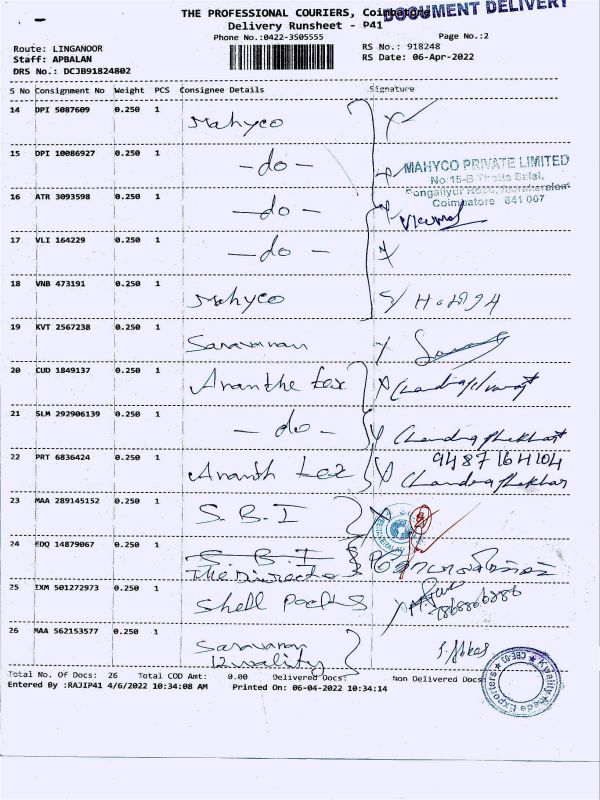 THE PROFESSIONAL COURIERS, Coimbatore
DOCUMENT DELIVERY
Delivery Runsheet - P41
Phone No.:0422-3505555
Page No.:2
Route: LINGANOOR
RS No.: 918248
Staff: APBALAN
RS Date: 06-Apr-2022
DRS No.: DCJB91824802
S No Consignment No Weight PCS Consignee Details Signature
14 DPI 5087609 0.250 1 Mahyco
15 DPI 10086927 0.250 1 -do-
MAHYCO PRIVATE LIMITED
No:15-B
Coimbatore 641 007
16 ATR 3093598 0.250 1 -do-
17 VLI 164229 0.250 1 -do-
18 VNB 473191 0.250 1 Mahyco
19 KVT 2567238 0.250 1 Saravanan
20 CUD 1849137 0.250 1 Ananthe tex
21 SLM 292906139 0.250 1 -do- Chandraphekhar
22 PRT 6836424 0.250 1 Ananth tex 9487164104
Chandraphekhar
23 MAA 289145152 0.250 1 S.B.I
24 EDQ 14879067 0.250 1 S.B.I
The Director
25 IXM 501272973 0.250 1 Shell
26 MAA 562153577 0.250 1 Saravanan
Kwality
Total No. Of Docs: 26 Total COD Amt: 0.00 Delivered Docs: Non Delivered Docs:
Entered By :RAJIP41 4/6/2022 10:34:08 AM Printed On: 06-04-2022 10:34:14